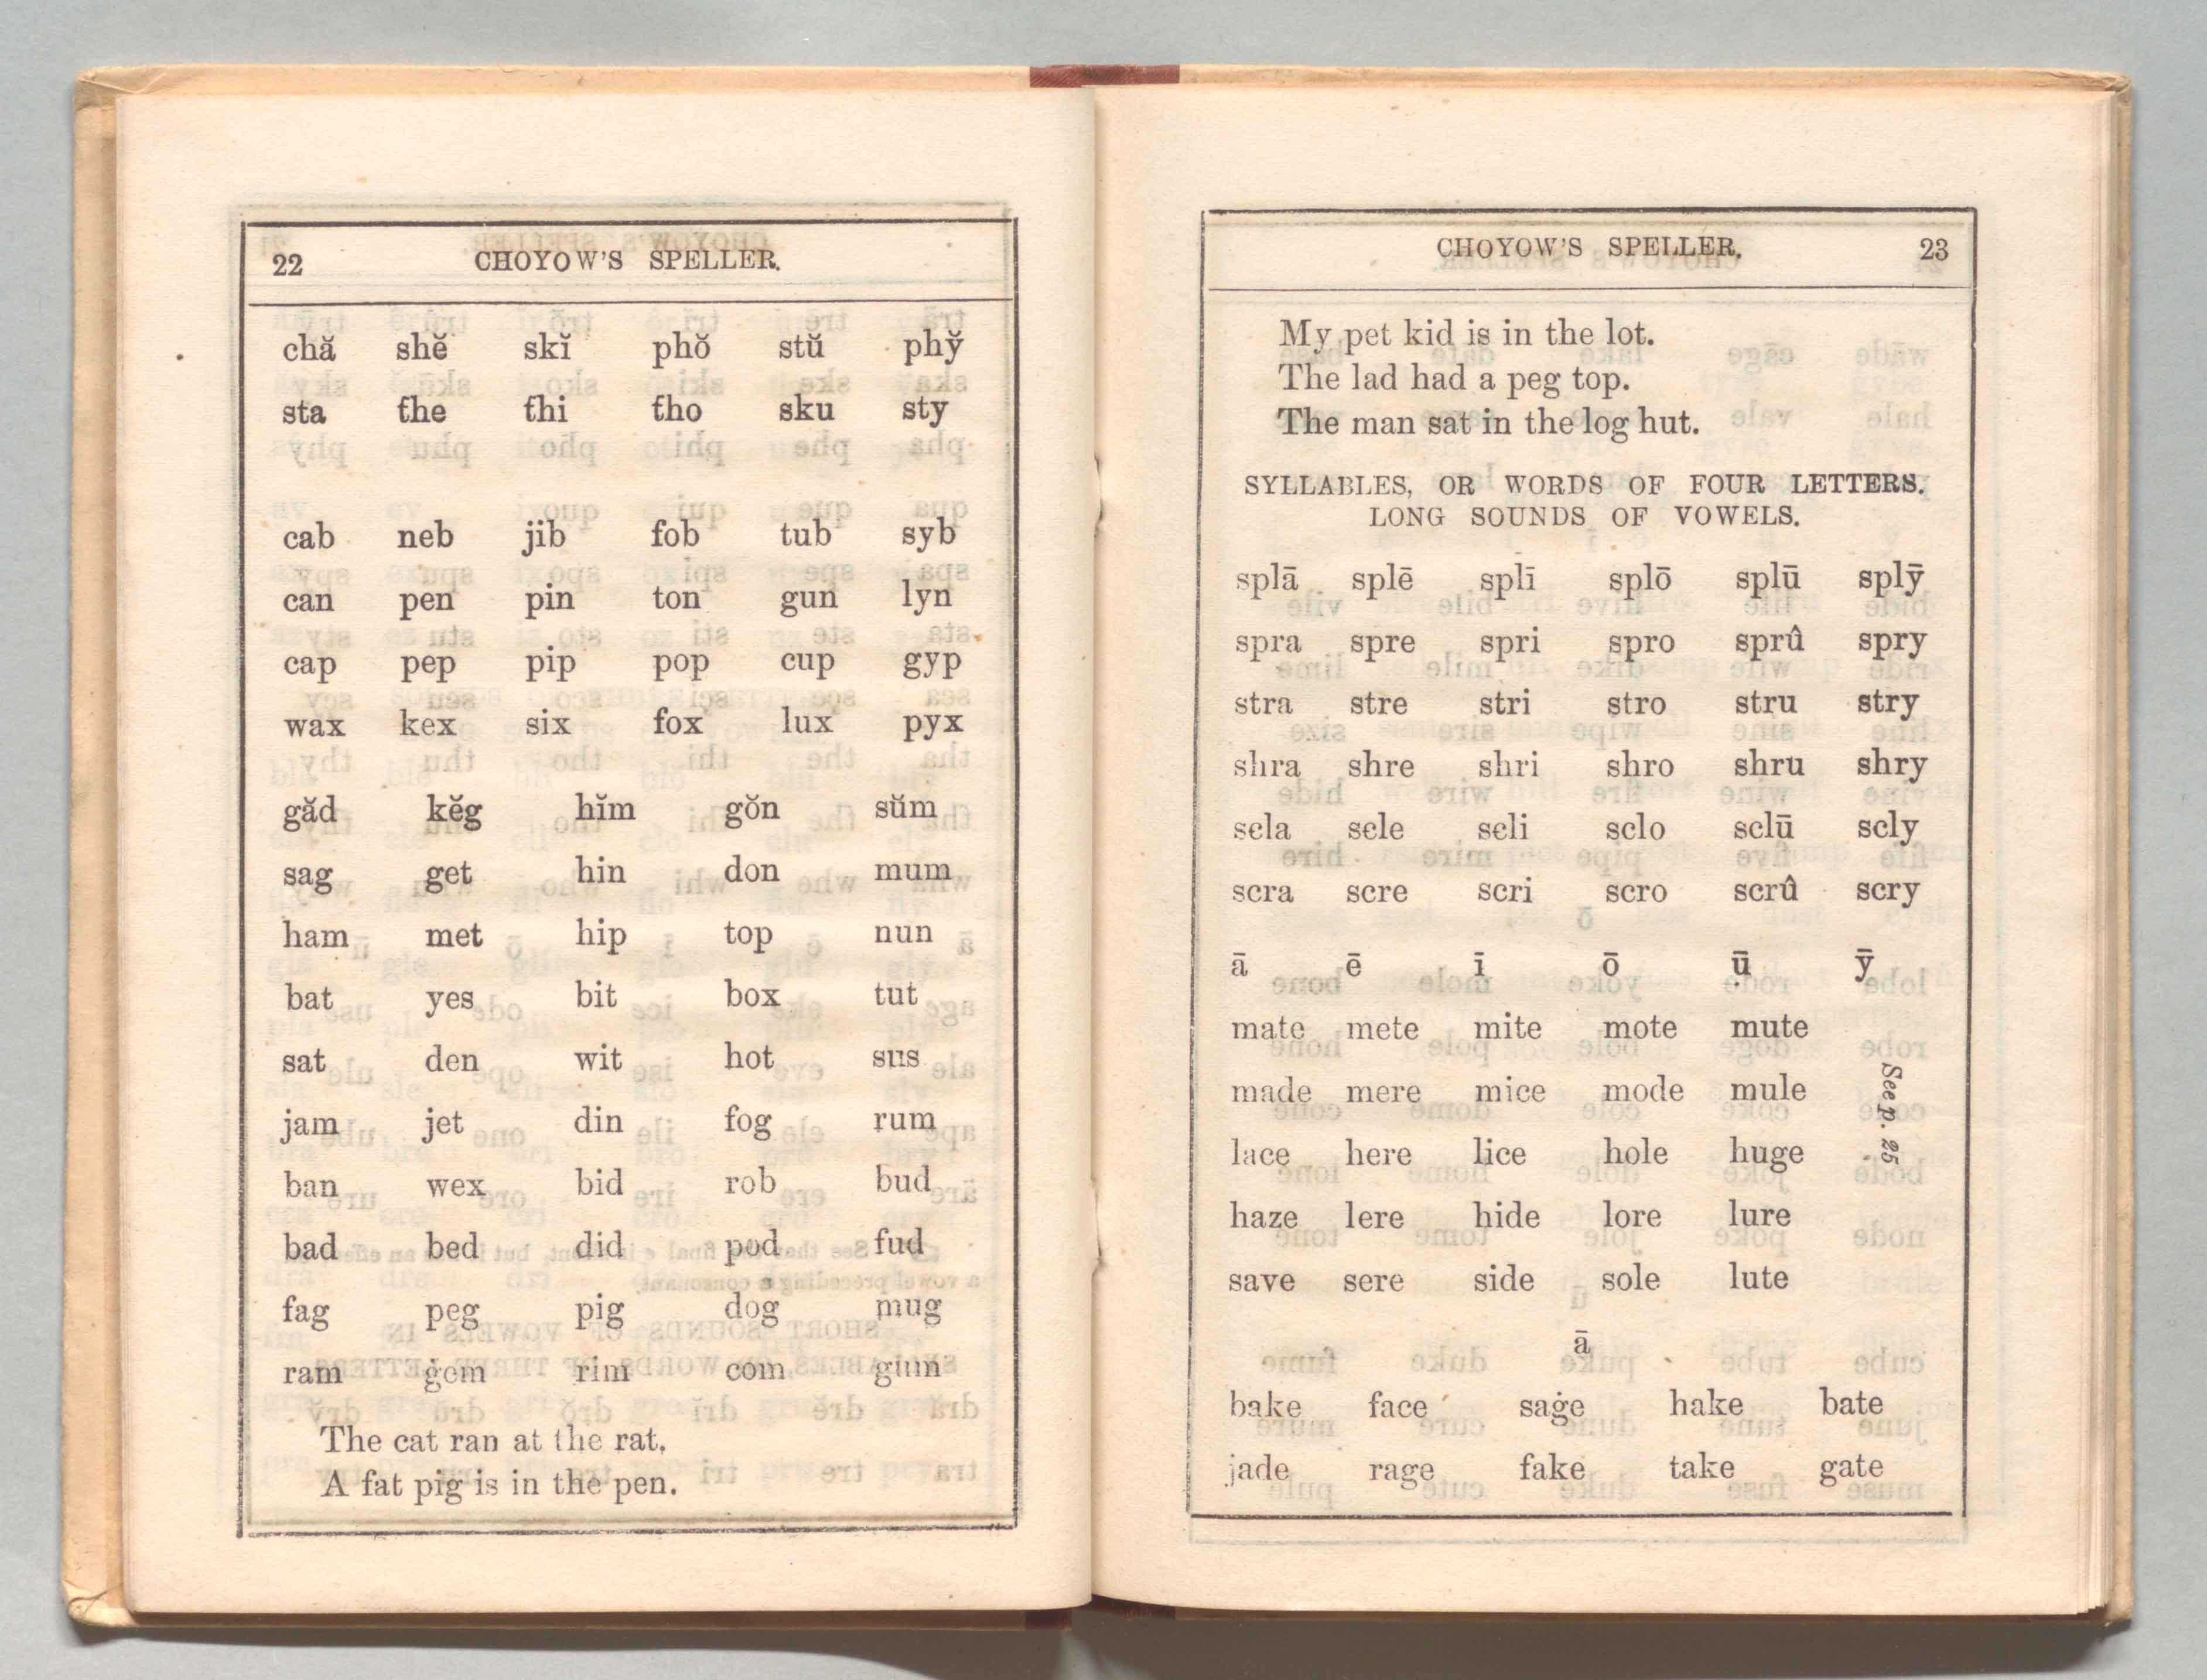 22 CHOYOW'S SPELLER.
chă shĕ skĭ phŏ stŭ phy̆
sta the thi tho sku sty
cab neb jib fob tub syb
can pen pin ton gun lyn
cap pep pip pop cup gyp
wax kex six fox lux pyx
găd kĕg hĭm gŏn sŭm
sag get hin don mum
ham met hip top nun
bat yes bit box tut
sat den wit hot sus
jam jet din fog rum
ban wex bid rob bud
bad bed did pod fud
fag peg pig dog mug
ram ġem rim com gum
The cat ran at the rat.
A fat pig is in the pen.
CHOYOW'S SPELLER. 23
My pet kid is in the lot.
The lad had a peg top.
The man sat in the log hut.
SYLLABLES, OR WORDS OF FOUR LETTERS.
LONG SOUNDS OF VOWELS.
splā splē splī splō splū splȳ
spra spre spri spro sprû spry
stra stre stri stro stru stry
shra shre shri shro shru shry
scla scle scli sclo sclū scly
scra scre scri scro scrû scry
ā ē ī ō ū ȳ
mate mete mite mote mute
made mere mice mode mule
lace here lice hole huge
haze lere hide lore lure
save sere side sole lute
See p. 25
ā
bake face saġe hake bate
jade rage fake take gate